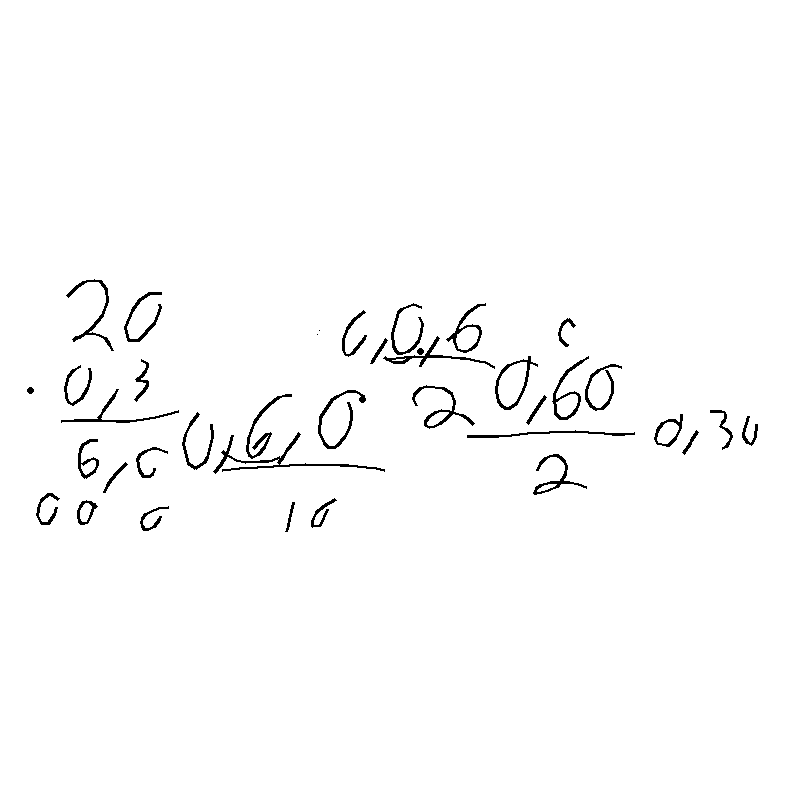 20
· 0,3
6,0
00 0
0,6,0
10
0,0,6
2
0
0,60
2
0,30